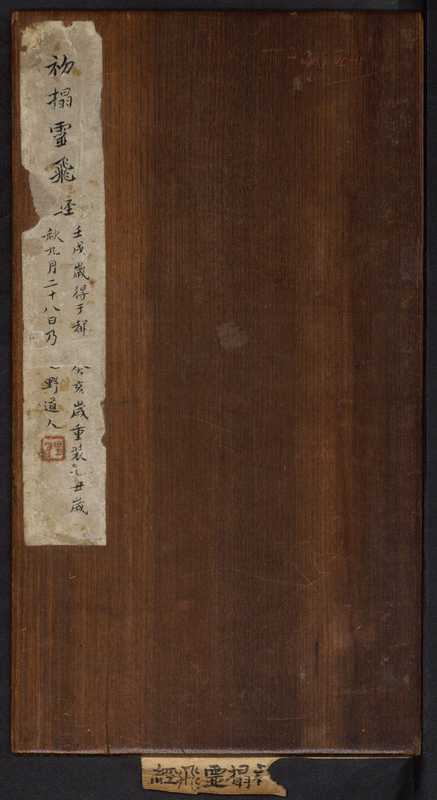 初搨霊飛
壬戌歲得于都 癸亥歲重裝乙丑歲
秋九月二十八日乃 野道人
搨霊飛經